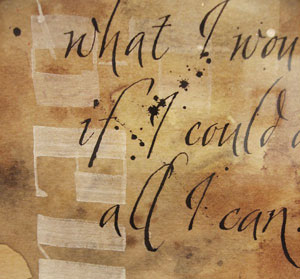 what I wou
if I could
all I can.